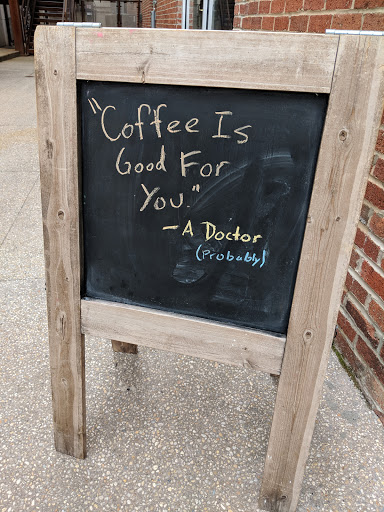 "Coffee Is
Good For
You."
- A Doctor
(Probably)